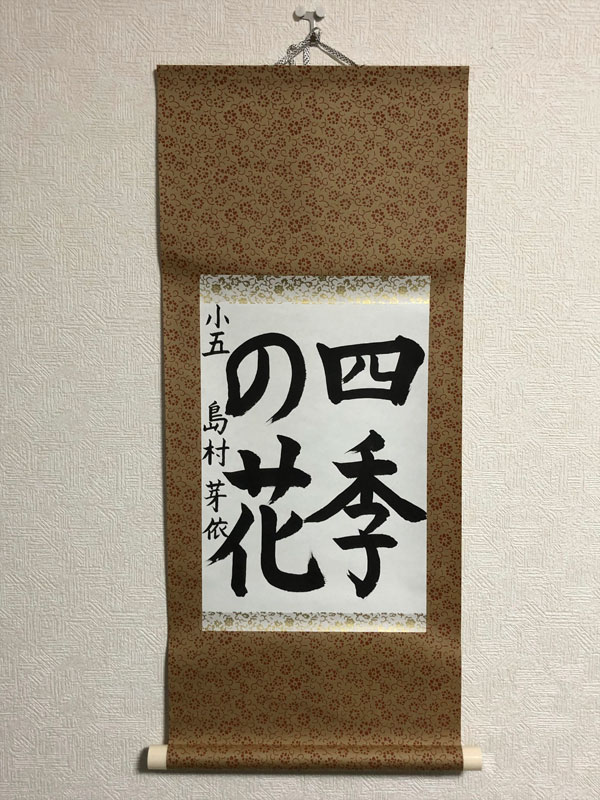 四季
の花
小五 島村芽依